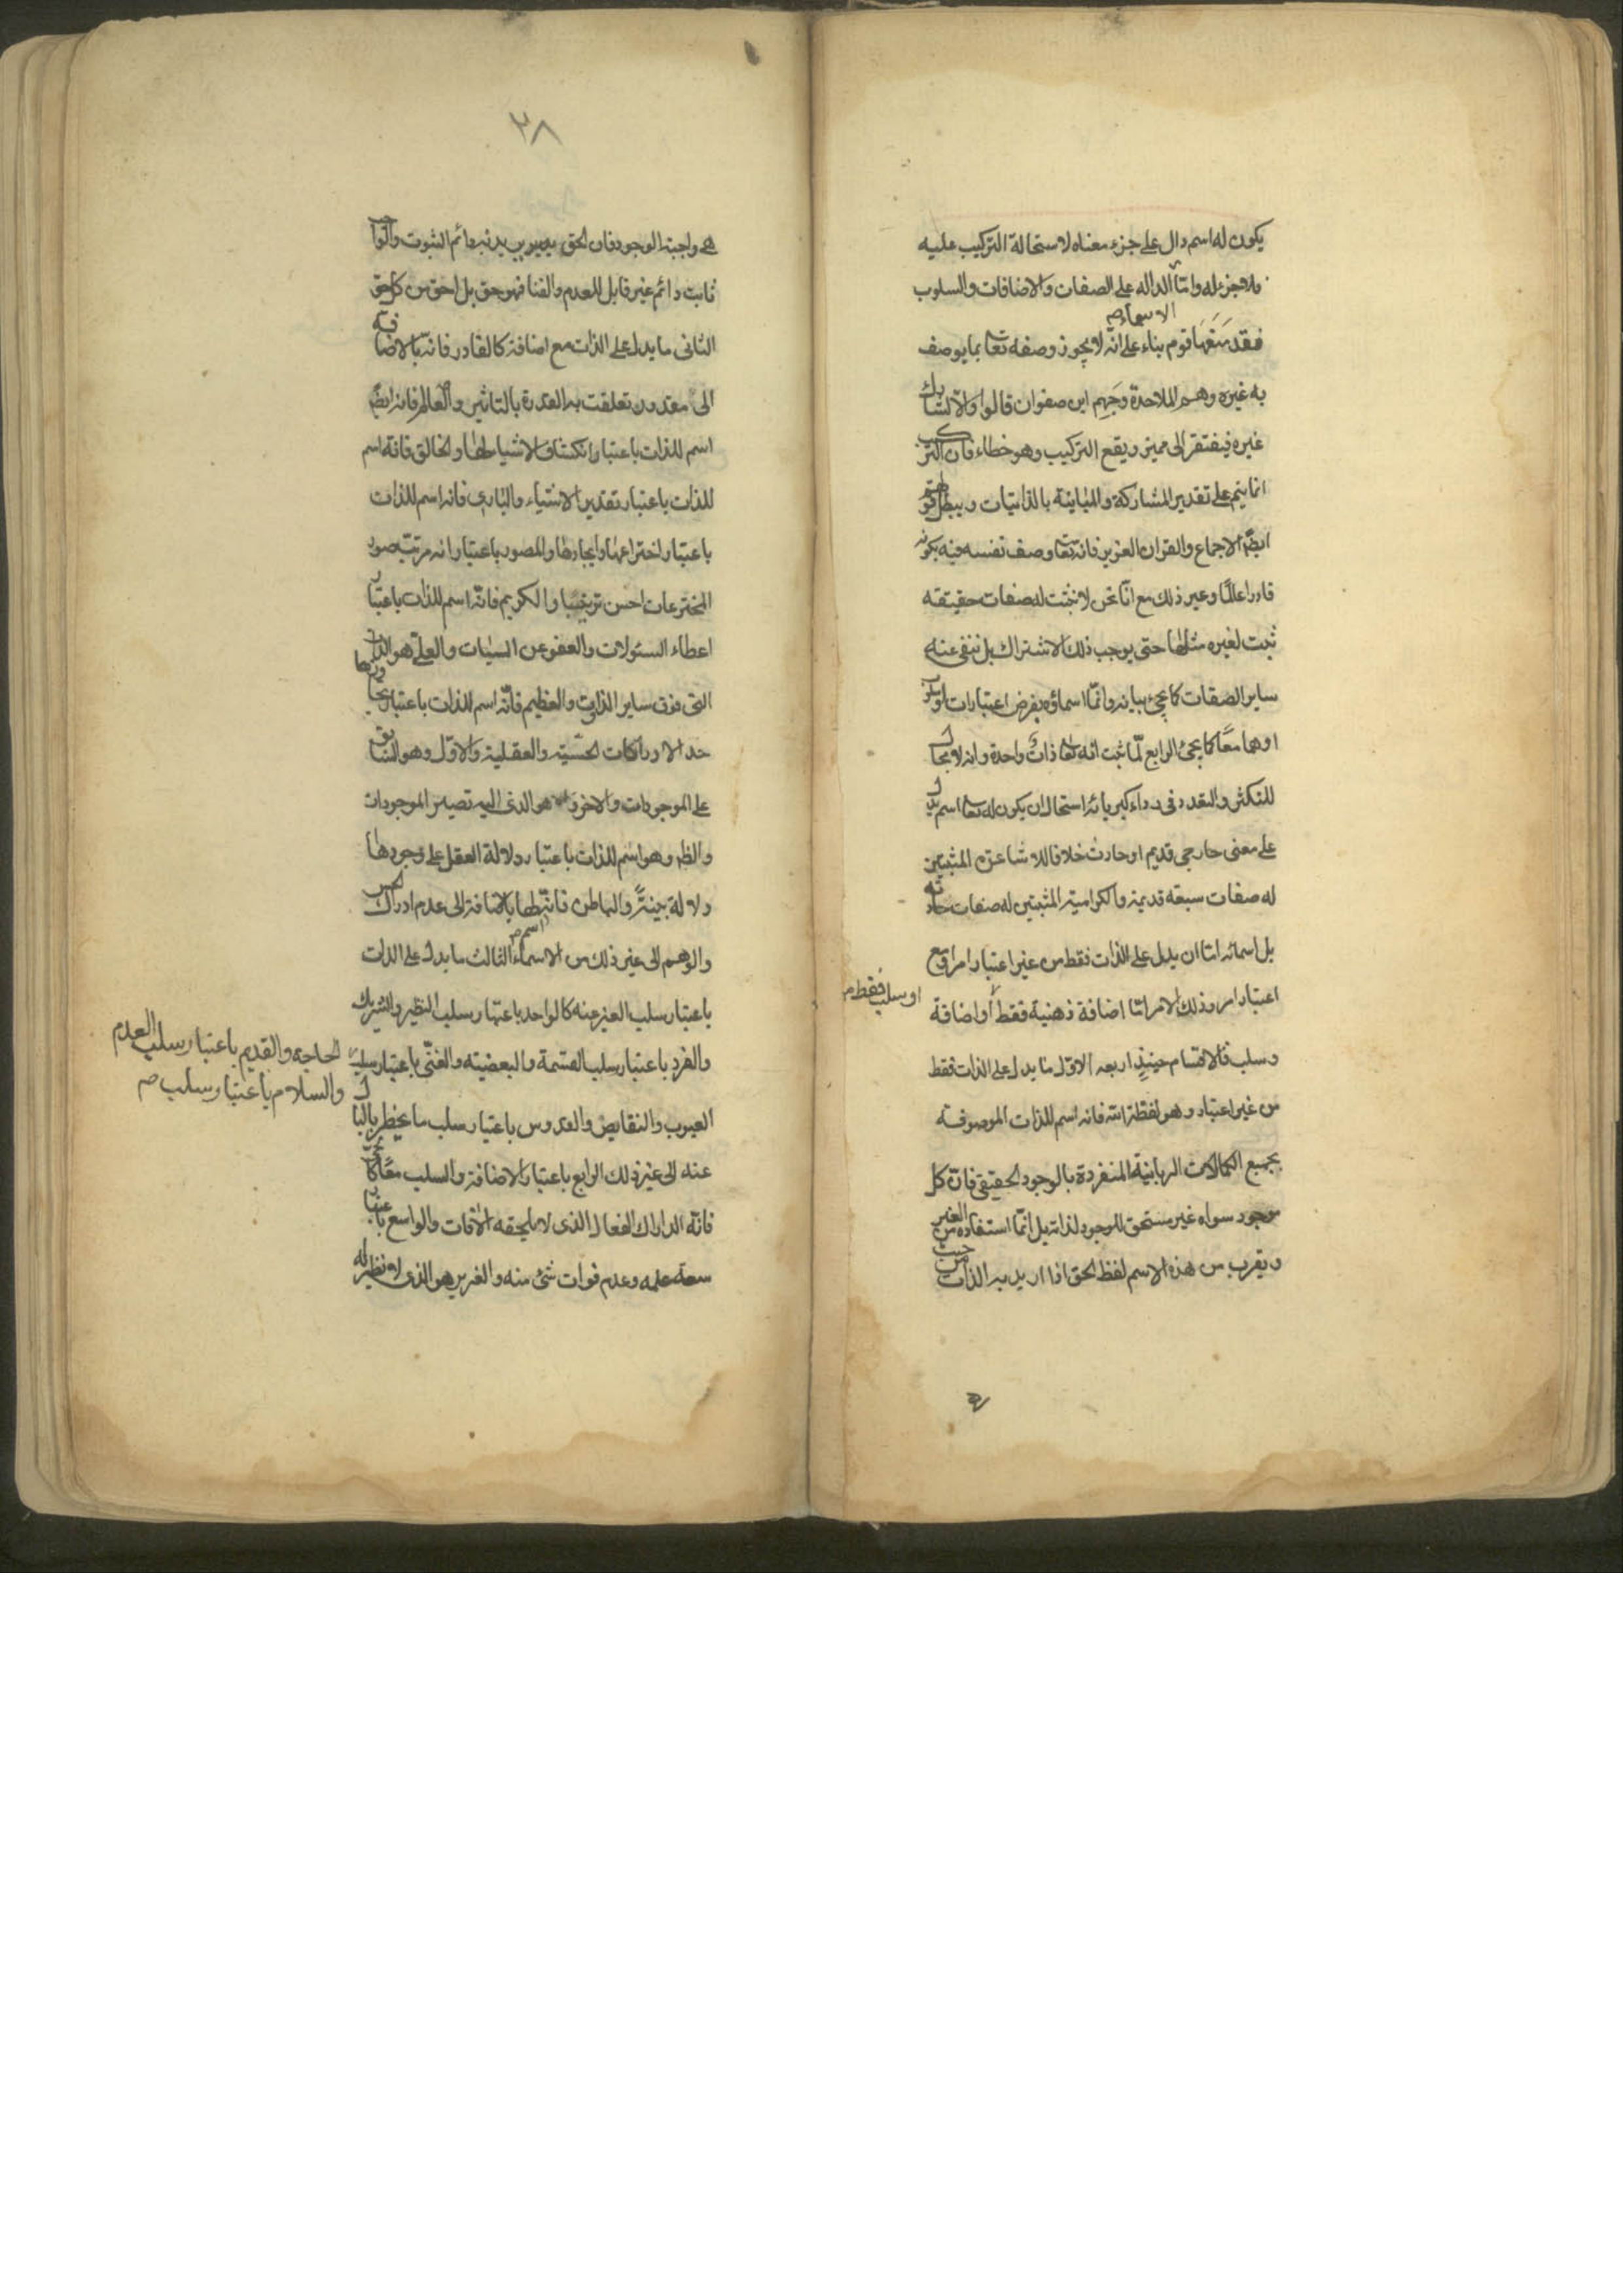 يكون له اسم دال على جزء معناه لاستحالة التركيب عليه
فلا جزء له واما الداله على الصفات والاضافات والسلوب
الاسماء صح
فقد منعها قوم بناء على انه لا يجوز وصفه تعا بما يوصف
به غيره وهم الملاحدة وجهم ابن صفوان قالوا والا لشارك
غيره فيفتقر الى مميز ويقع التركيب وهو خطاء فان التركيب
انما يتم على تقدير المشاركة والمباينة بالذاتيات ويبطل قولهم
ايضا الاجماع والقران العزيز فانه تعا وصف نفسه فيه بكونه
قادرا عالما وغير ذلك مع انا نحن لا نثبت له صفات حقيقه
ثبت لغيره مثلها حتى يوجب ذلك الاشتراك بل ننفى عنه
ساير الصفات كما يجئ بيانه وانما اسماؤه بفرض اعتبارات
او هما معا كما يجئ الرابع لما ثبت انه تعا ذات واحدة وانه لا مجال
للتكثر والتعدد فى رداء كبريائه استحال ان يكون له تعا اسم يدل
على معنى خارجى قديم او حادث خلافا للاشاعرة المثبتين
له صفات سبعة قديمة والكرامية المثبتين له صفات حادثه
بل اسمائه اما ان يدل على الذات فقط من غير اعتبار امر او مع
اعتبار امر وذلك الامر اما اضافة ذهنية فقط او اضافة
او سلب فقط صح
وسلب فالاقسام حينئذ اربعه الاول ما يدل على الذات فقط
من غير اعتبار وهو لفظة الله فانه اسم للذات الموصوفة
بجميع الكمالات الربانية المنفردة بالوجود الحقيقى فان كل
موجود سواه غير مستحق للوجود لذاته بل انما استفاده من الغير
ويقرب من هذه الاسم لفظ الحق اذا اريد به الذات من حيث
٣٨
هى واجبة الوجود فان الحق يريدون به دائم الثبوت والواجب
ثابت دائم غير قابل للعدم والفنا فهو حق بل احق من كل حق
الثانى ما يدل على الذات مع اضافة كالقادر فانه بالاضافه
الى مقدور تعلقت به القدرة بالتاثير والعالم فانه ايضا
اسم للذات باعتبار انكشاف الاشيا لها والخالق فانه اسم
للذات باعتبار تقدير الاشياء والبارى فانه اسم للذات
باعتبار اختراعها وايجادها والمصور باعتبار انه مرتب صور
المخترعات احسن ترتيبا والكريم فانه اسم للذات باعتبار
اعطاء السئولات والعفو عن السيئات والعلى هو الذات
التى فوق ساير الذوات والعظيم فانه اسم للذات باعتبار تجاوزها
حد الادراكات الحسية والعقلية والاول وهو السابق
على الموجودات والاخر هو الذى اليه تصير الموجودات
والظ وهو اسم للذات باعتبار دلالة العقل على وجودها
دلالة بينة والباطن فانه لها بالاضافة الى عدم ادراك الحس
والوهم الى غير ذلك من الاسماء الثالث ما يدل على الذات
باعتبار سلب الغير عنه كالواحد باعتبار سلب النظير والشريك
والفرد باعتبار سلب القسمة والبعضيته والغنى باعتبار سلب
الحاجه والقديم باعتبار سلب العدم
والسلام باعتبار سلب صح
العيوب والنقايص والقدوس باعتبار سلب ما يخطر بالبال
عنه الى غير ذلك الرابع باعتبار الاضافة والسلب معا كالحى
فانه الدراك الفعال الذى لا يلحقه الافات والواسع باعتبار
سعة علمه وعدم فوات شئ منه والعزيز هو الذى لا نظير له